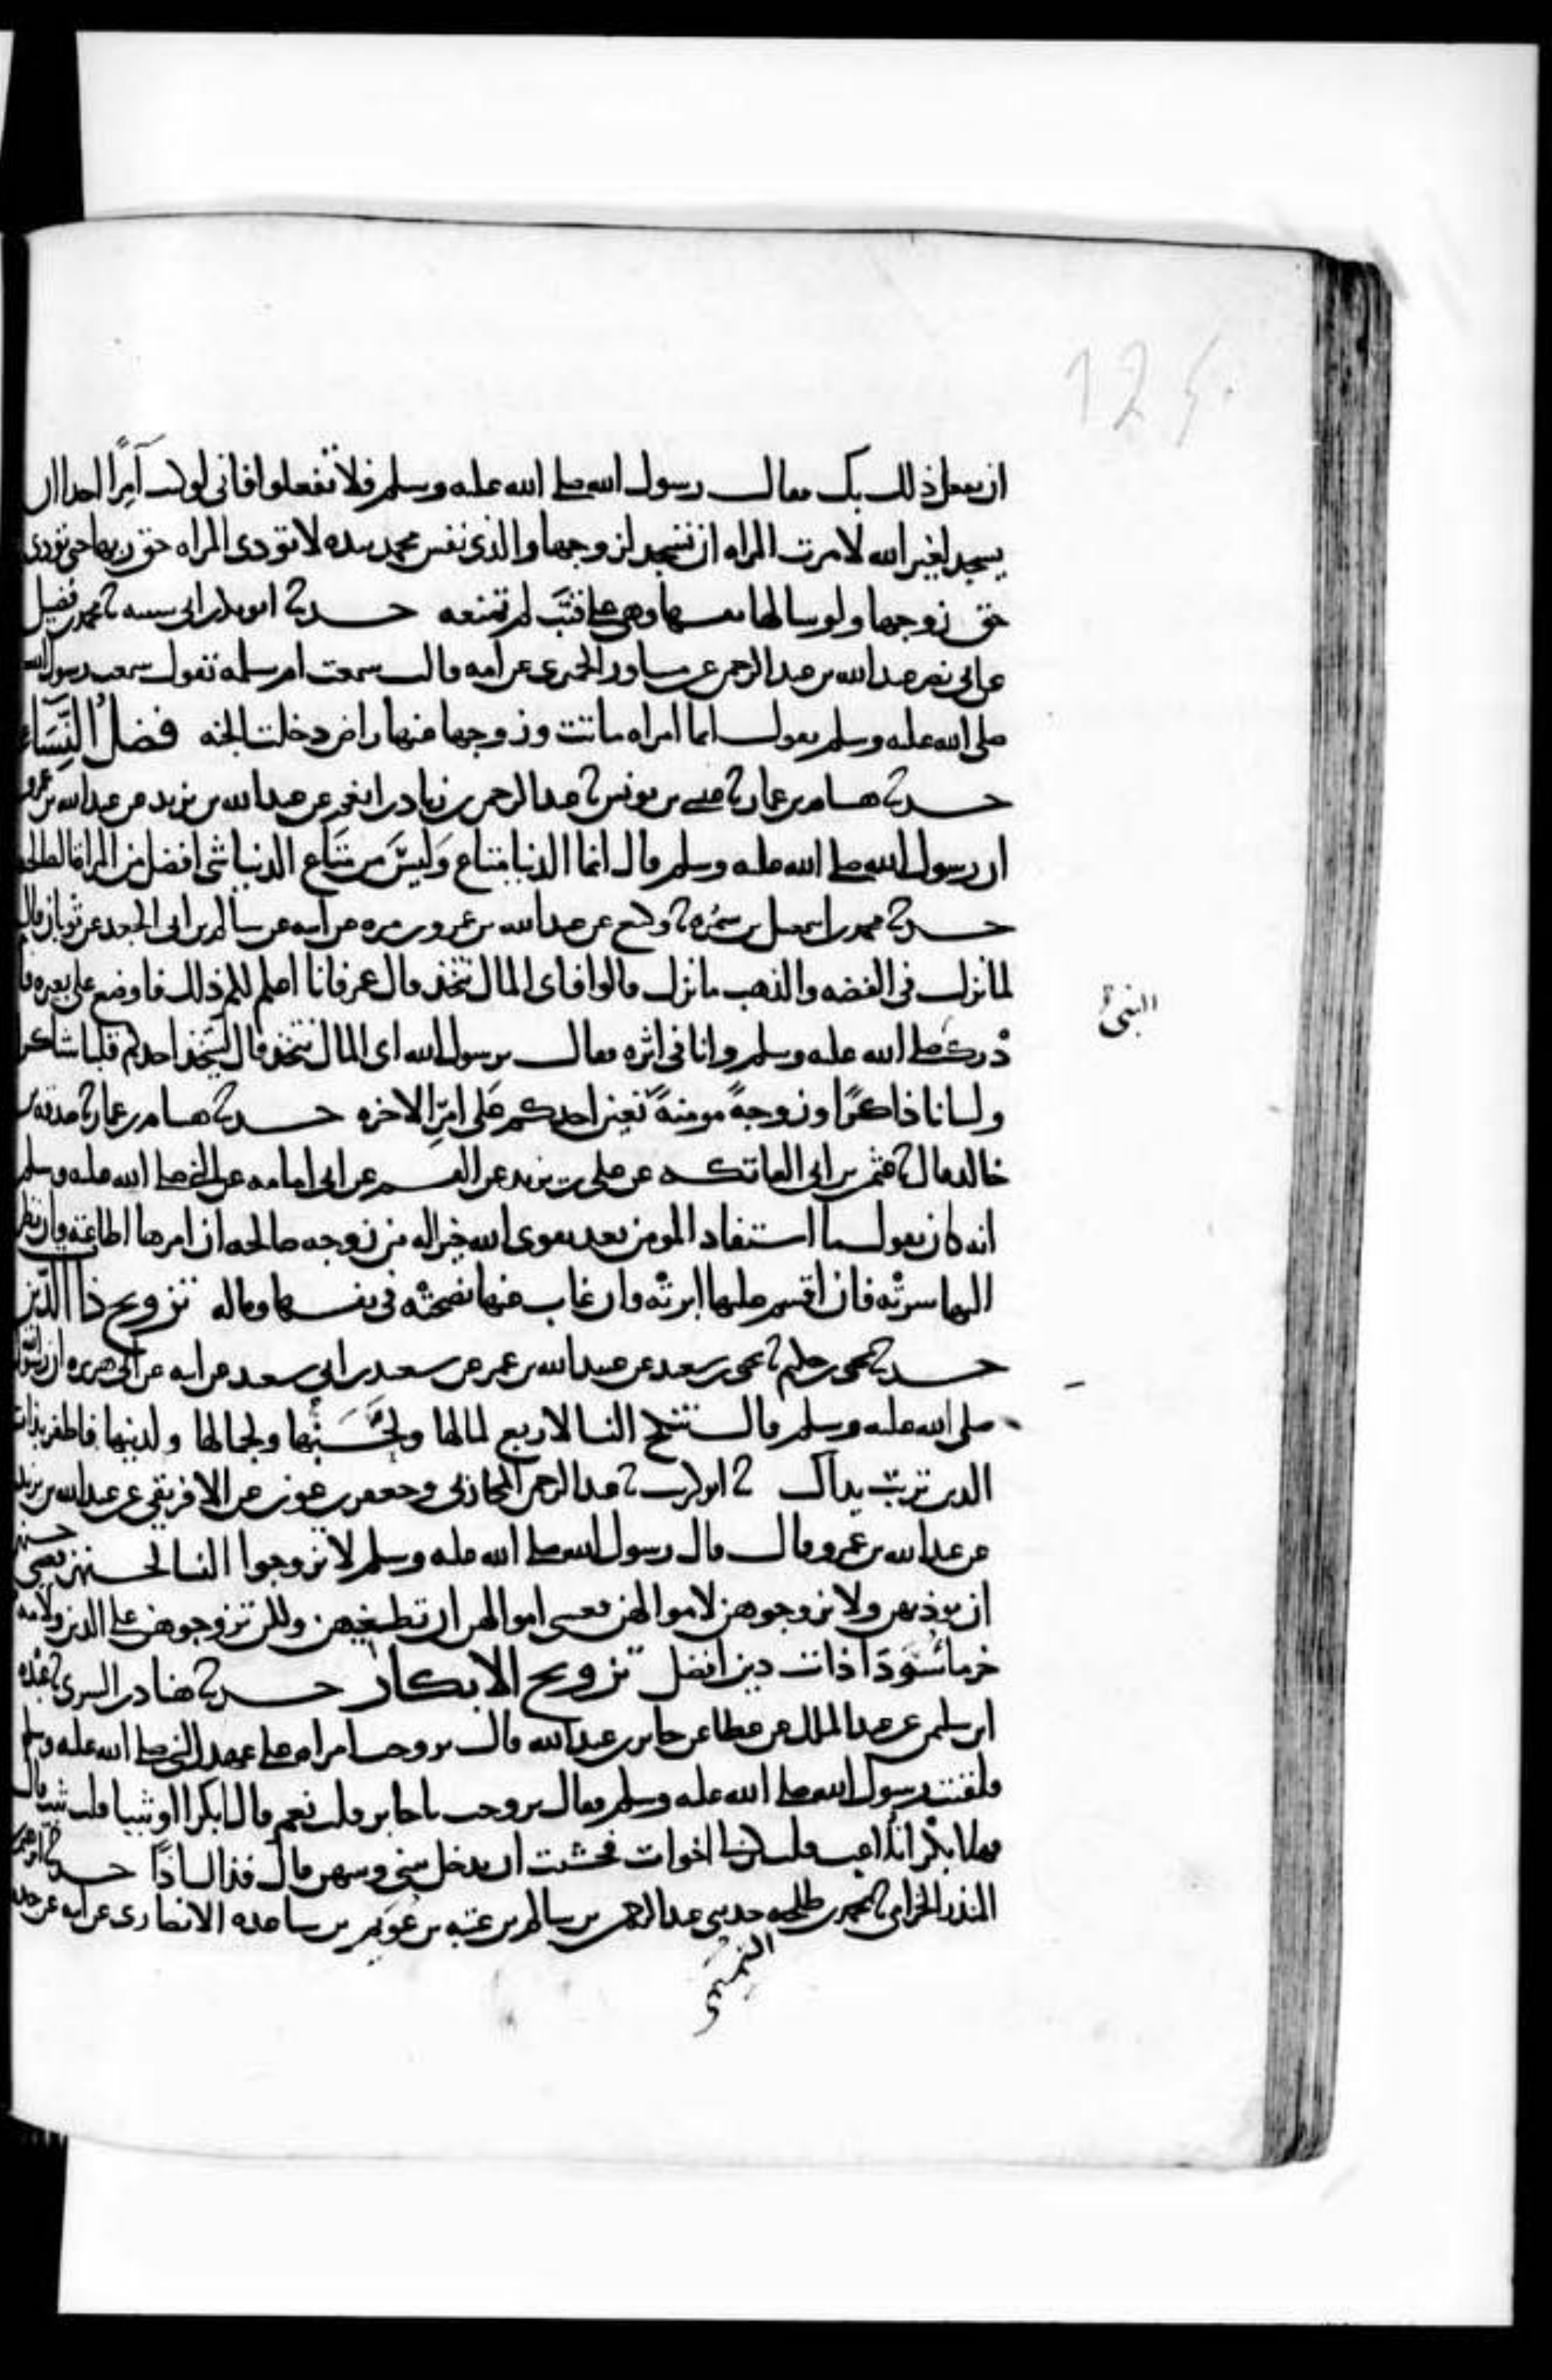 125
ان نفعل ذلك بك فقال رسول الله صلى الله عليه وسلم فلا تفعلوا فاني لو كنت آمِرًا احدا ان
يسجد لغير الله لامرت المراه ان تسجد لزوجها والذي نفس محمد بيده لا تودي المراه حق ربها حتى تودي
حق زوجها ولو سالها نفسها وهي على قتب لم تمنعه حدثنا ابو بكر بن ابي شيبه ثنا محمد بن فضيل
عن ابي نصر عبد الله بن عبد الرحمن عن مساور الحميري عن امه قالت سمعت ام سلمه تقول سمعت رسول الله
صلى الله عليه وسلم يقول ايما امراه ماتت وزوجها عنها راض دخلت الجنه فضل النِّسَاء
حدثنا هشام بن عمار ثنا عيسى بن يونس ثنا عبد الرحمن بن زياد بن انعم عن عبد الله بن يزيد عن عبد الله بن عمرو
ان رسول الله صلى الله عليه وسلم قال انما الدنيا متاع وَليسَ من متَاع الدنيا شي افضل من المراة الصالحة
حدثنا محمد بن اسمعيل بن سمُره ثنا وكيع عن عبد الله بن عمرو بن مره عن ابيه عن سالم بن ابي الجعد عن ثوبان قال
لما نزل في الفضه والذهب ما نزل قالوا فاى المال نتخذ قال عمر فانا اعلم لكم ذلك فاوضع على بعيره فا
دْرك صلى الله عليه وسلم وانا في اثره فقال يرسول الله اى المال نتخذ قال ليتخذ احدكم قلبا شاكرا
النبيّ
ولسانا ذاكرًا وزوجةً مومنةً تعين احدكم عَلى امرِ الاخره حدثنا هشام بن عمار ثنا صدقه بن
خالد قال ثنا عثمن بن ابي العاتكه عن علي بن يزيد عن القسم عن ابي امامه عن النبي صلى الله عليه وسلم
انه كان يقول ما استفاد المومن بعد تقوى الله خيرا له من زوجه صالحه ان امرها اطاعته وان نظر
اليها سرتْه فان اقسم عليها ابرتْه وان غاب عنها نصحتْه في نفسها وماله تزويج ذا الدّين
حدثنا يحيى بن حكيم ثنا يحيى بن سعيد عن عبيد الله بن عمر عن سعيد بن ابي سعيد عن ابيه عن ابي هريره ان رسول الله
صلى الله عليه وسلم قال تنكح النسا لاربع لمالها ولحَسَبها ولجمالها ولدينها فاظفر بذات
الدين تربتْ يداك ثنا ابو كريب ثنا عبد الرحمن المحاربي وجعفر بن عون عن الافريقي عن عبد الله بن يزيد
عن عبد الله بن عمرو قال قال رسول الله صلى الله عليه وسلم لا تزوجوا النسا لحسنهن فعسى حسنهن
ان يرديهن ولا تزوجوهن لاموالهن فعسى اموالهن ان تطغيهن ولكن تزوجوهن على الدين ولامه
خرما سَوْدَا ذات دين افضل تزويج الابكار حدثنا هناد بن السري ثنا عبْده
ابن سليمن عن عبد الملك عن عطا عن جابر بن عبد الله قال تزوجت امراه على عهد النبي صلى الله عليه وسلم
فلقيت رسول الله صلى الله عليه وسلم فقال تزوجت يا جابر قلت نعم قال ابكرا او ثيبا قلت ثيبا قال
فهلا بكرا تلاعبها قلت كن لي اخوات فخشيت ان يدخل بيني وبينهن قال فذاك اذًا حدثنا ابرهيم بن
المنذر الحزامي ثنا محمد بن طلحه حدثني عبد الرحمن بن سالم بن عتبه بن عُوَيم بن ساعده الانصاري عن ابيه عن جده
التيميّ